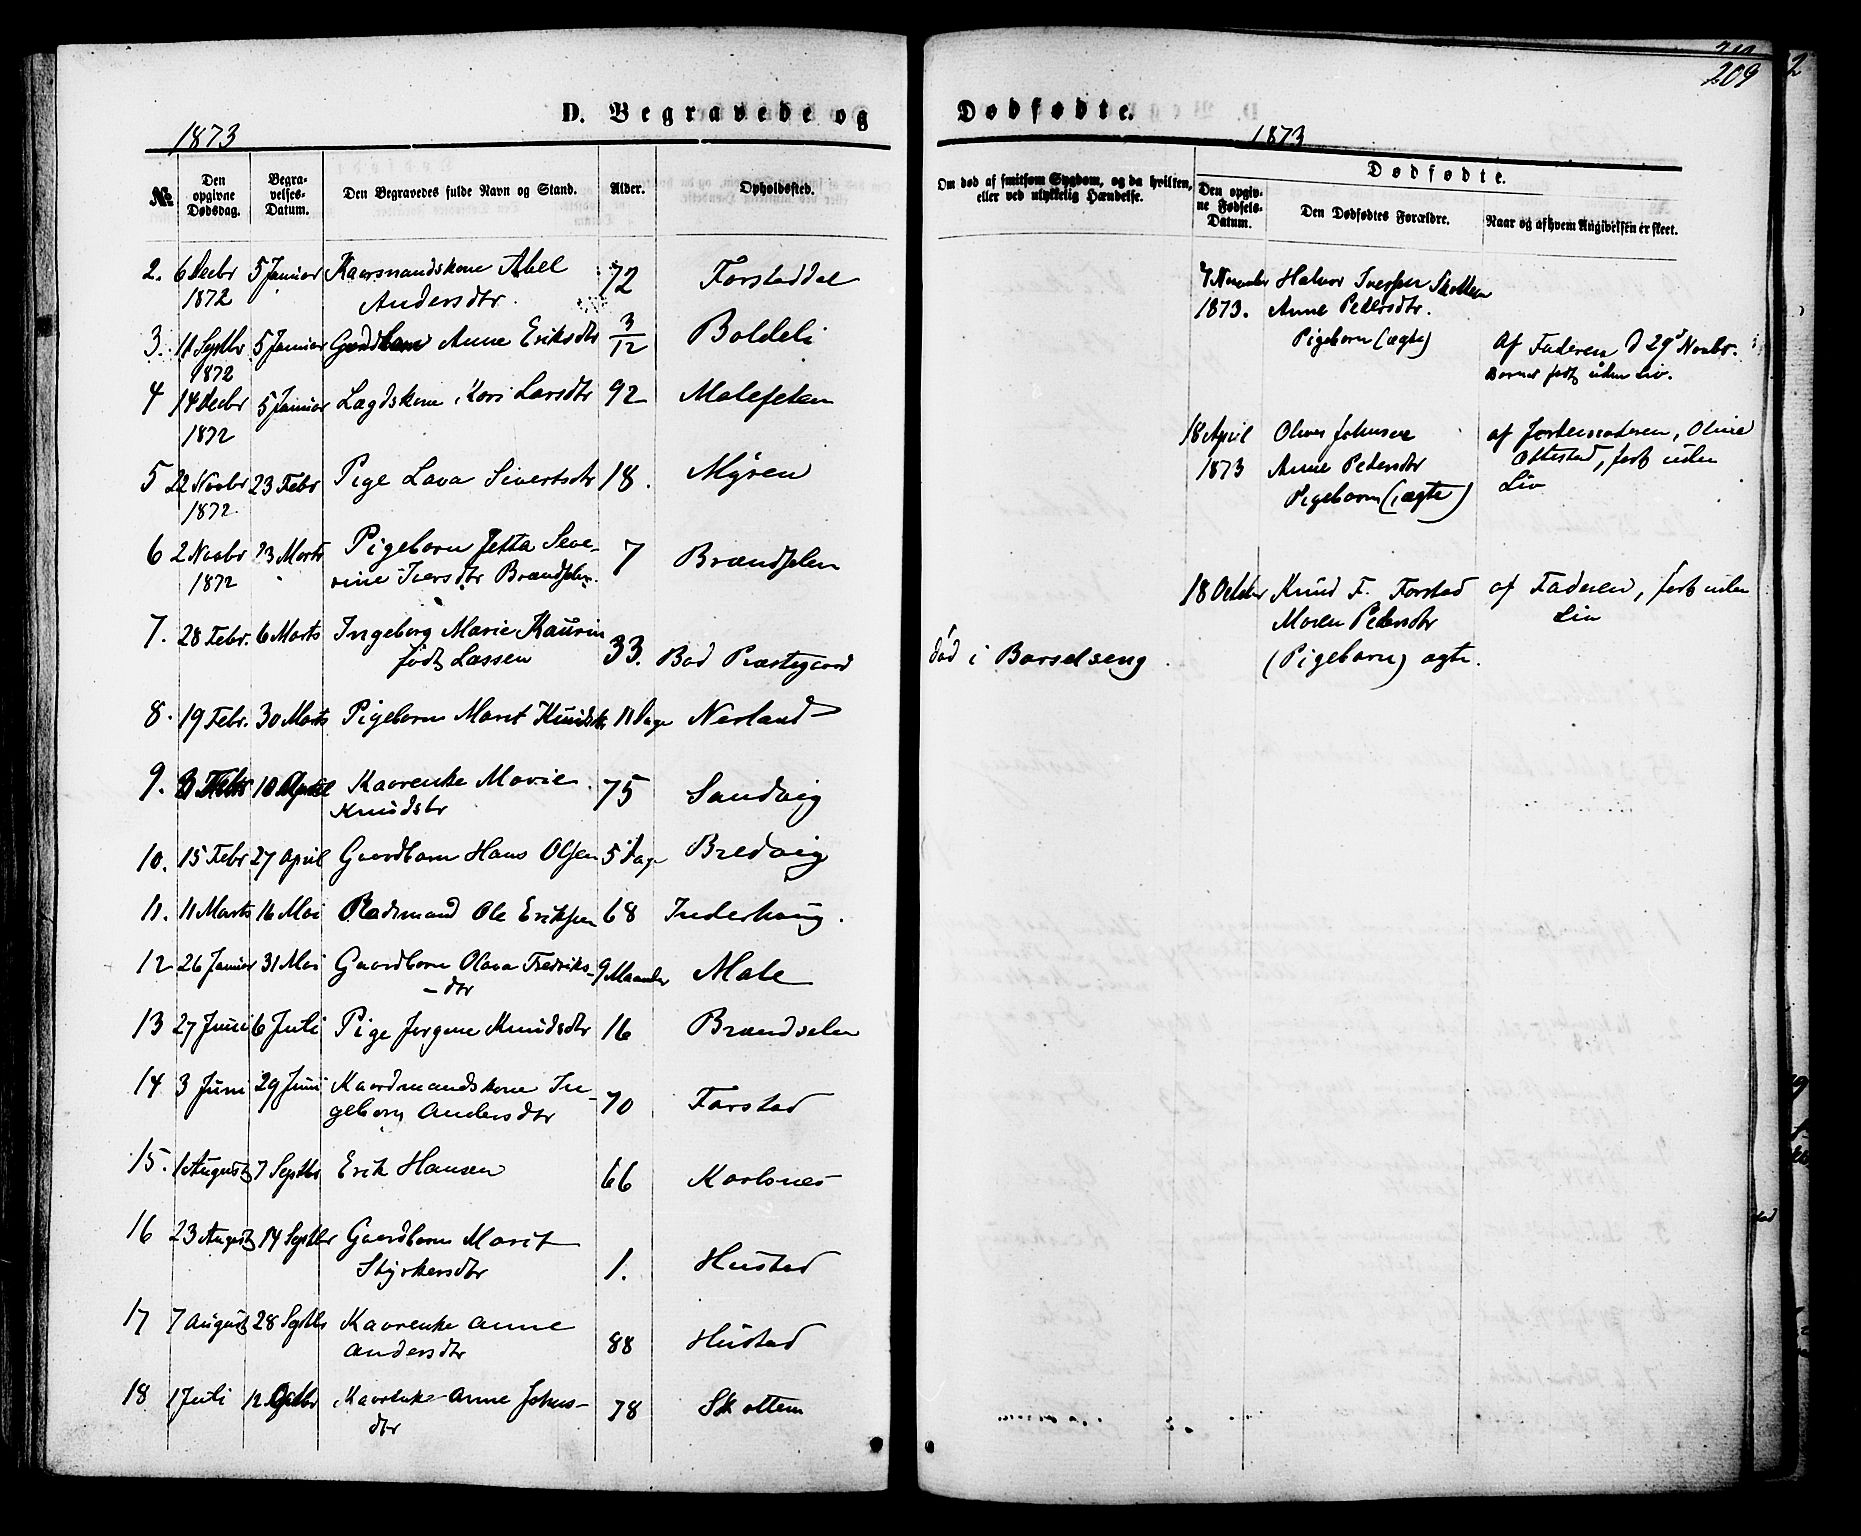 209
D. Begravede og Dødfødte.
1873
1873
№
Den opgivne Dødsdag.
Begravelses-Datum.
Den Begravedes fulde Navn og Stand.
Alder.
Opholdssted.
Om død af smitsom Sygdom, og da hvilken,
eller ved ulykkelig Hændelse.
Dødfødte.
Den opgivne Fødsels-Datum.
Den Dødfødtes Forældre.
Naar og af hvem Angivelsen er skeet.
2. 6 Decbr 5 Januar Abel 72
1872 Andersdtr.
3. 11 Septbr 5 Januar Anne Eriksdtr 3/12 Boldeli
1872
4 14 Decbr 5 Januar Lægdskone Kari Larsdtr 92
1872
5 22 Novbr 23 Febr Pige Lava Sivertsdtr 18. Myren
1872
6 2 Novbr 23 Marts Pigebarn Jetta Seve- 7
1872 rine Iversdtr
7. 28 Febr. 6 Marts Ingeborg Marie Kaurin 33. Bod Præstegaard død i Barselseng
født Lassen
8. 19 Febr. 30 Marts Pigebarn Marit Knudsdtr 11 Dage Nerland
9. Febr 10 April Kaarenke Marie 75 Sandvig
Knudsdtr
10. 15 Febr 27 April Gaardbarn Hans Olsen 5 Dage Bredvig
11. 11 Marts 16 Mai Ole Eriksen 68 Inderhaug.
12 26 Januar 31 Mai Gaardbarn Olava Fredriks- 9 Maaneder Male
-dtr
13 27 Juni 6 Juli Pige Jørgene Knudsdtr 16
14 3 Juni 29 Juni Kaardmandskone In- 70 Farstad
geborg Andersdtr
15. 1 August 7 Septbr Erik Hansen 66
16 23 August 14 Septbr Gaardbarn Marit 1. Hustad
Styrkersdtr
17 7 August 28 Septbr Kaarenke Anne 88 Hustad
Andersdtr
18 1 Juli 12 Kaarenke Anne Johns- 78 Skottem
dtr
7 November Halvor Iversen Skottem
1873. Anne Pedersdtr.
Pigebarn (ægte) Af Faderen d 29 Novbr.
Barnet født uden Liv.
18 April af Jordemoderen, Oline
1873 Anne Pedersdtr Ottestad, født uden
Pigebarn (ægte) Liv
18 October Knud F. Farstad af Faderen, født uden
Maren Pedersdtr Liv
(Pigebarn) ægte.